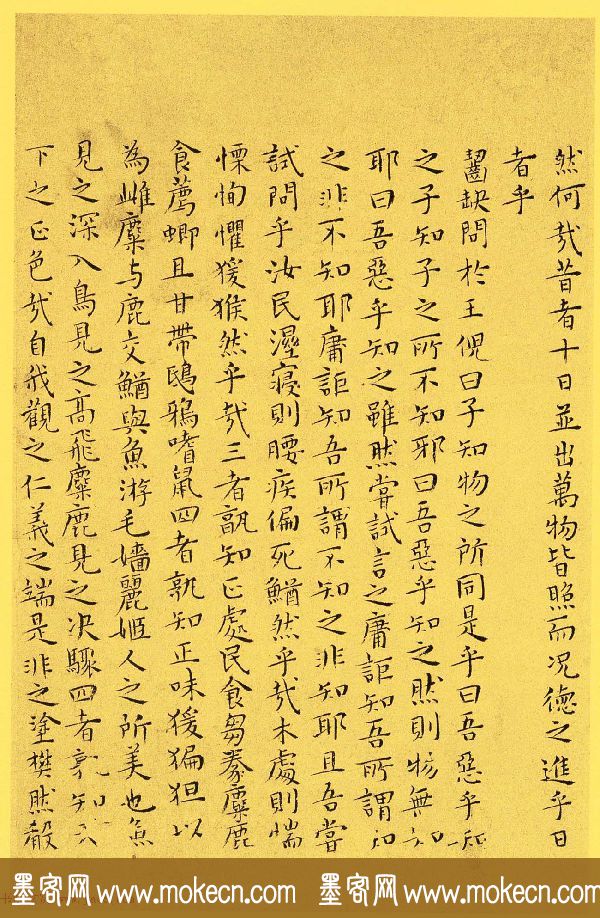 然何哉昔者十日並出萬物皆照而况德之進乎日
者乎
齧缺問於王倪曰子知物之所同是乎曰吾惡乎知
之子知子之所不知邪曰吾惡乎知之然則物無知
耶曰吾惡乎知之雖然嘗試言之庸詎知吾所謂知
之非不知耶庸詎知吾所謂不知之非知耶且吾嘗
試問乎汝民溼寢則腰疾偏死鰌然乎哉木處則惴
慄恂懼猨猴然乎哉三者孰知正處民食芻豢麋鹿
食薦蝍且甘帶鴟鴉嗜鼠四者孰知正味猨猵狙以
為雌麋与鹿交鰌與魚游毛嬙麗姬人之所美也魚
見之深入鳥見之高飛麋鹿見之决驟四者孰知天
下之正色哉自我觀之仁義之端是非之塗樊然殽
墨客网 www.mokecn.com 墨客网 www.mokecn.com